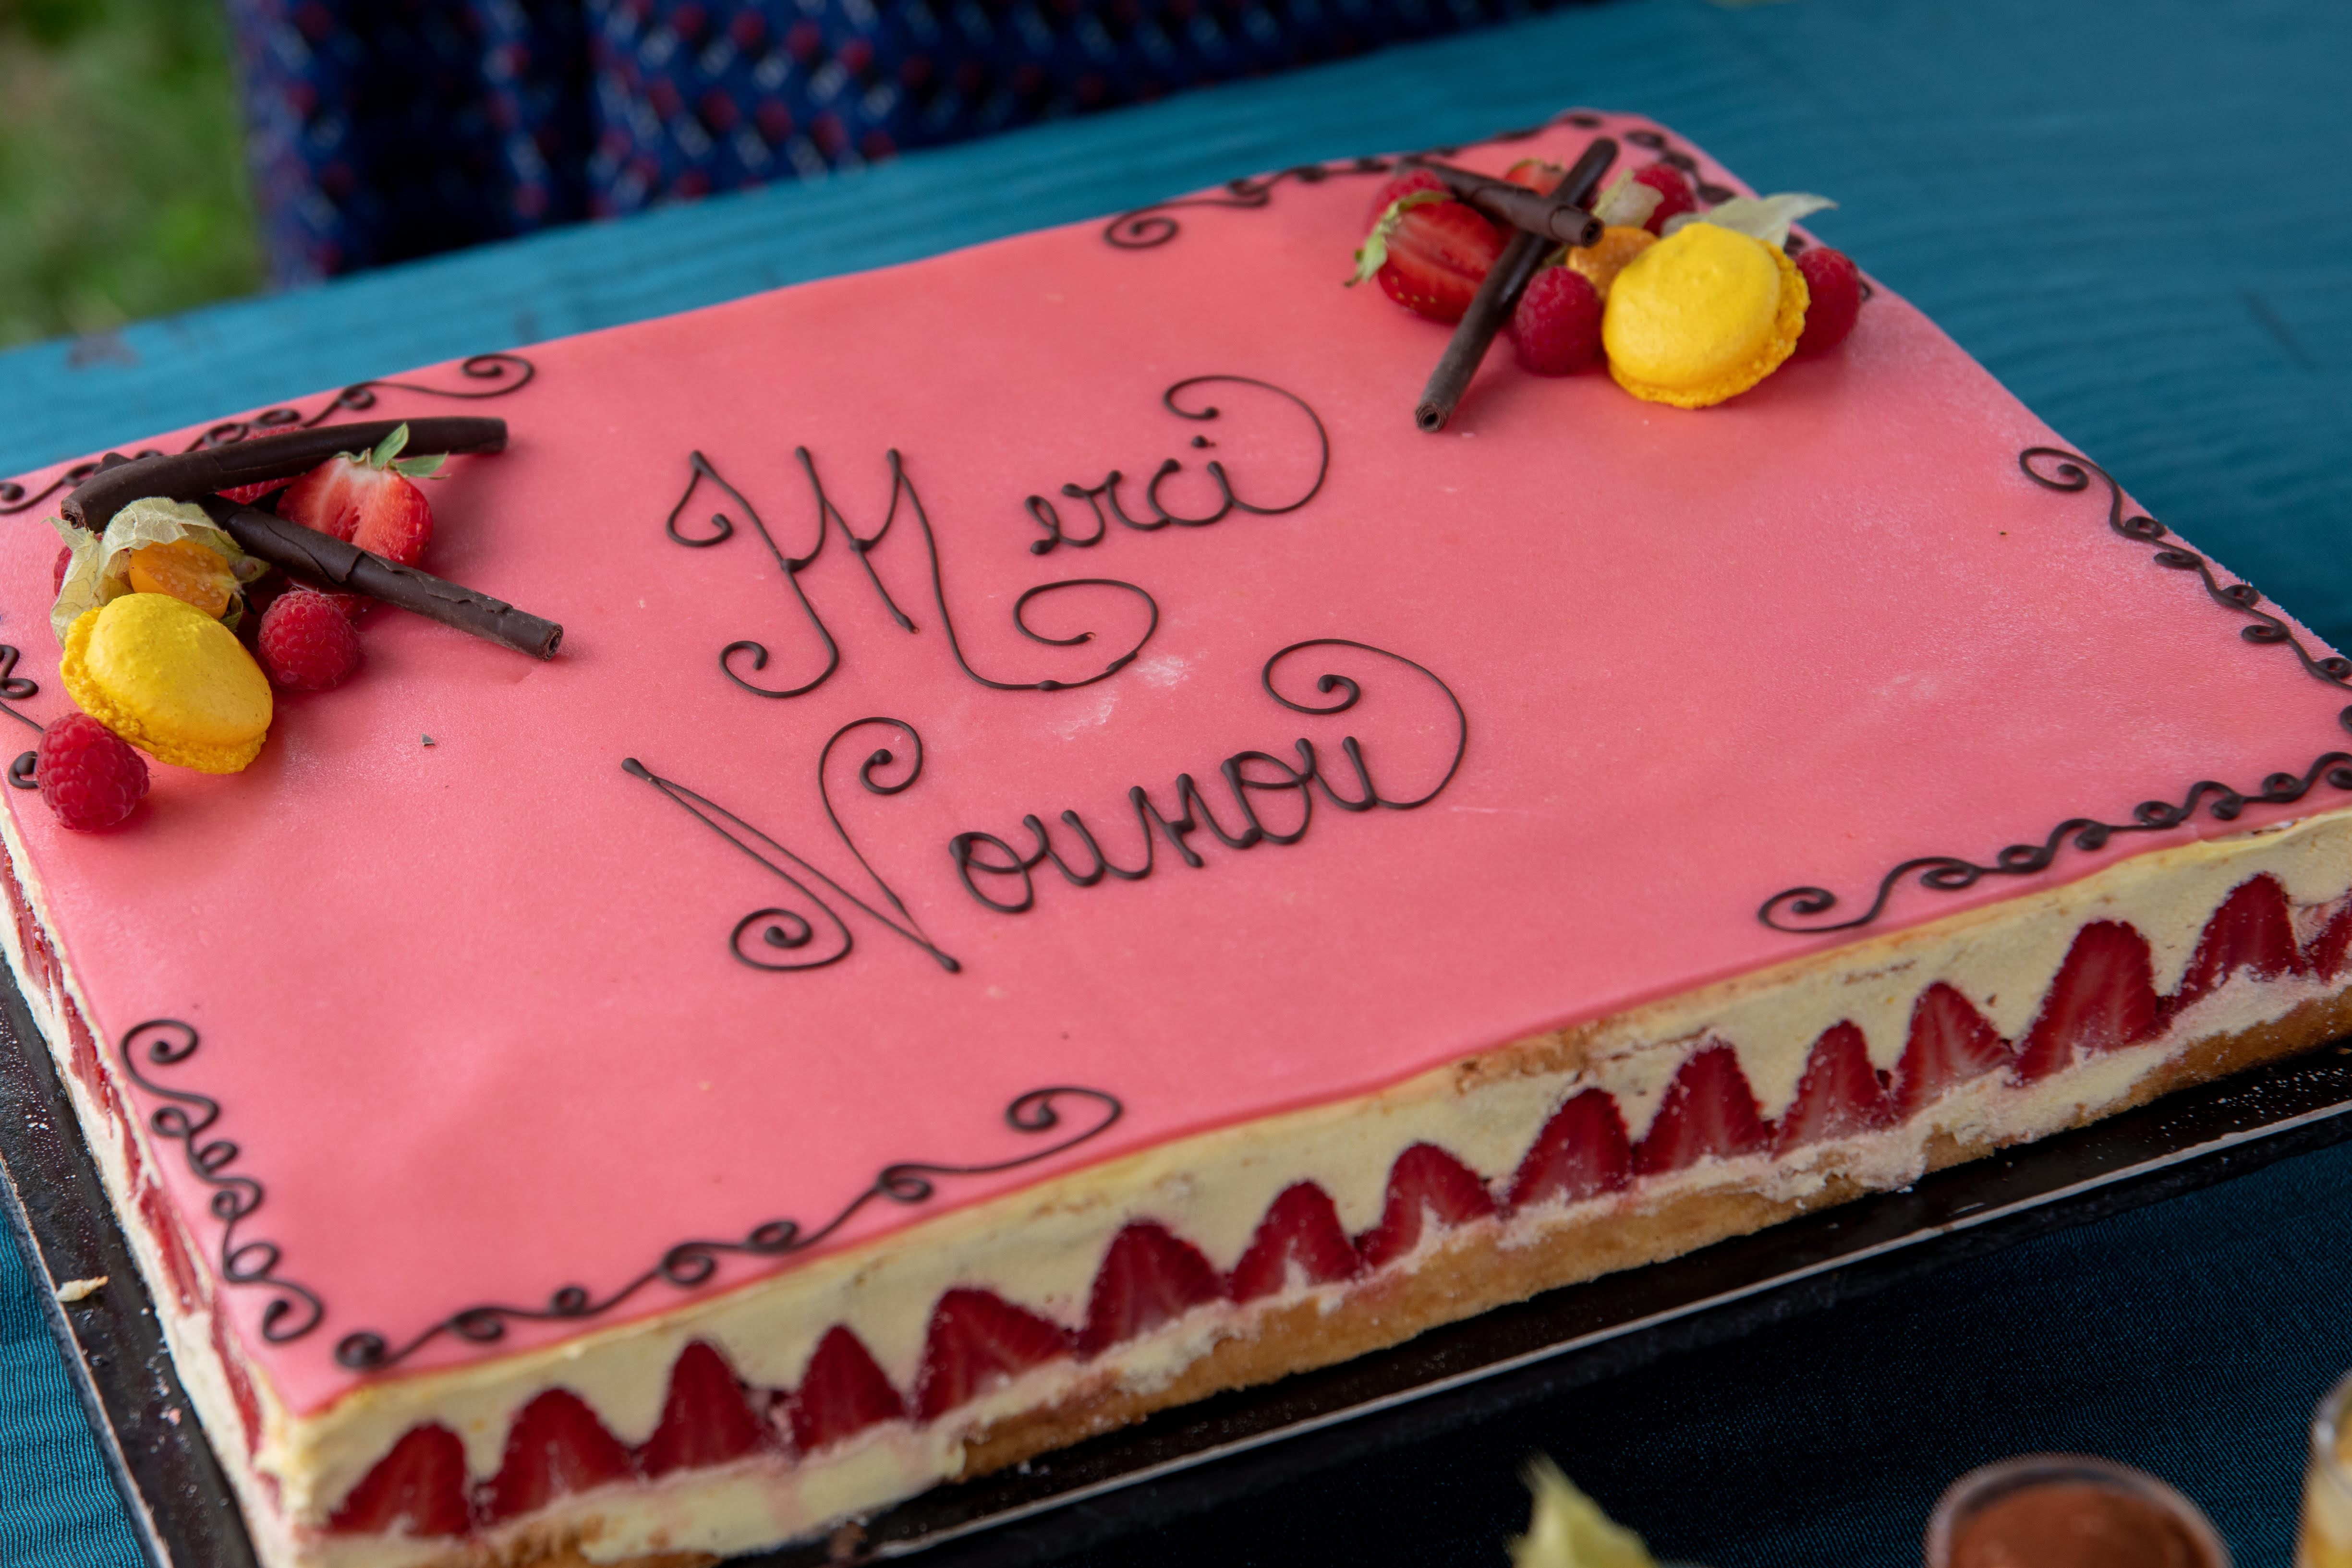 Merci
Nounou